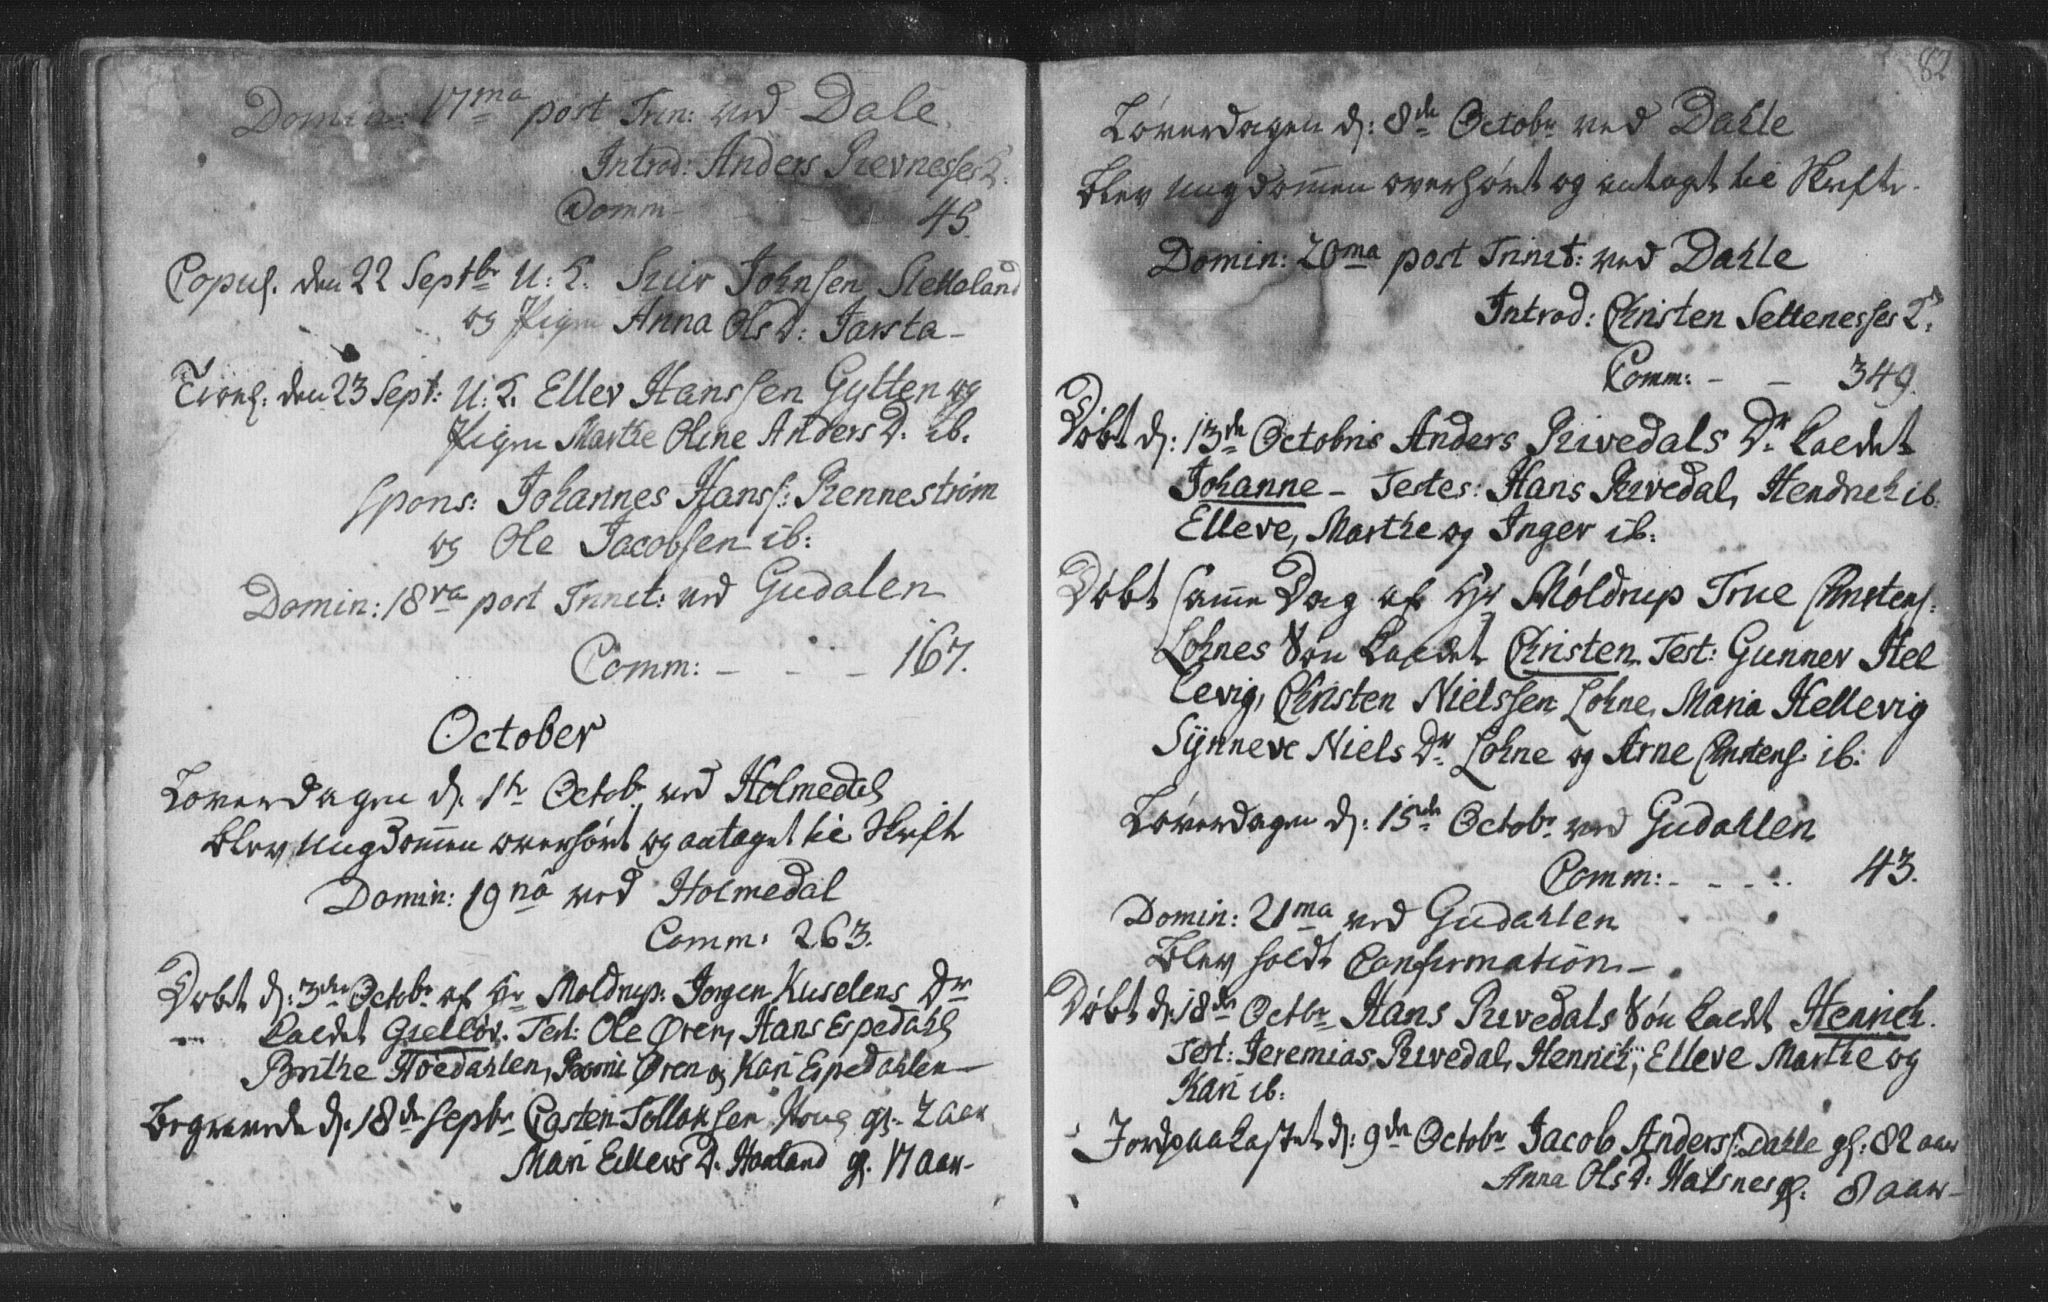 Domin: 17ma post Trin: ved Dale.
Introd: Anders Revnesses K.
Comm - - - 45.
Copul. den 22 Septbr U: K. Siur Johnsen Slettoland
og Pigen Anna Ols D: Jarsta -
Trol. den 23 Sept: U: K. Ellev Hanssen Gytten og
Pigen Marthe Oline Anders D. ib.
spons: Johannes Hanss: Rennestrøm
og Ole Jacobsen ib:
Domin: 18va post Trinit: ved Gudalen
Comm: - - - 167.
October
Løverdagen d. 1te Octobr ved Holmedal
blev Ungdommen overhørt og antaget til Skrifte
Domin: 19na ved Holmedal
Comm: 263.
Døbt d: 3die Octobr af Hr Moldrup: Jørgen Kuselens Dr
kaldet Gielløv. Test: Ole Øren, Hans Espedahl
Brithe Høedahlen, Øren og Kari Espedahlen -
Begravede d. 18de Septbr Casten Tollovsen gl. 2 aar
Mari Ellevs D. Hovland gl. 17 aar -
82
Løverdagen d: 8de Octobr ved Dahle
blev Ungdommen overhørt og antaget til Skrifte.
Domin: 20ma post Trinit: ved Dahle
Introd: Christen Settenesses K.
Comm: - - 349.
Døbt d: 13de Octobris Anders Rivedals Dr kaldet
Johanne - Testes: Hans Rivedal, Hendrich ib.
Elleve, Marthe og Inger ib:
Døbt samme Dag af Hr Moldrup True Christens:
Lohnes Søn kaldet Christen. Test: Gunner Hel
levig, Christen Nielssen Lohne, Maria Hellevig
Synneve Niels Dr Lohne og Arne Christens. ib:
Løverdagen d: 15de Octobr ved Gudahlen
Comm: - - - - 43.
Domin: 21ma ved Gudahlen
blev holdt Confirmation. -
Døbt d: 18de Octbr Hans Rivedals Søn kaldt Henrich.
Test: Jeremias Rivedal, Henrich, Elleve Marthe og
Kari ib:
Jordpaakastet d: 9de Octobr Jacob Anderss: Dahle gl: 82 aar
Anna Ols D: Halsnes gl: 8 aar -